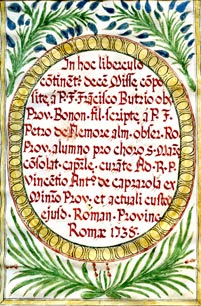 In hoc liberculo
cōtinēt' decē Misse cōpo
site a P. F. Frācisco Butrio obs
Prov. Bonon. fil. scripte a P. F.
Petro de Nemore alm. obser. Ro.
Prov. alumno pro choro S. Mariæ
cōsolat. curāte Ad. R. P.
Vincētio Ant. de caprarola ex
Minrō Prov. et actuali custo
ejusd. Roman. Provinc.
Romæ 1735.